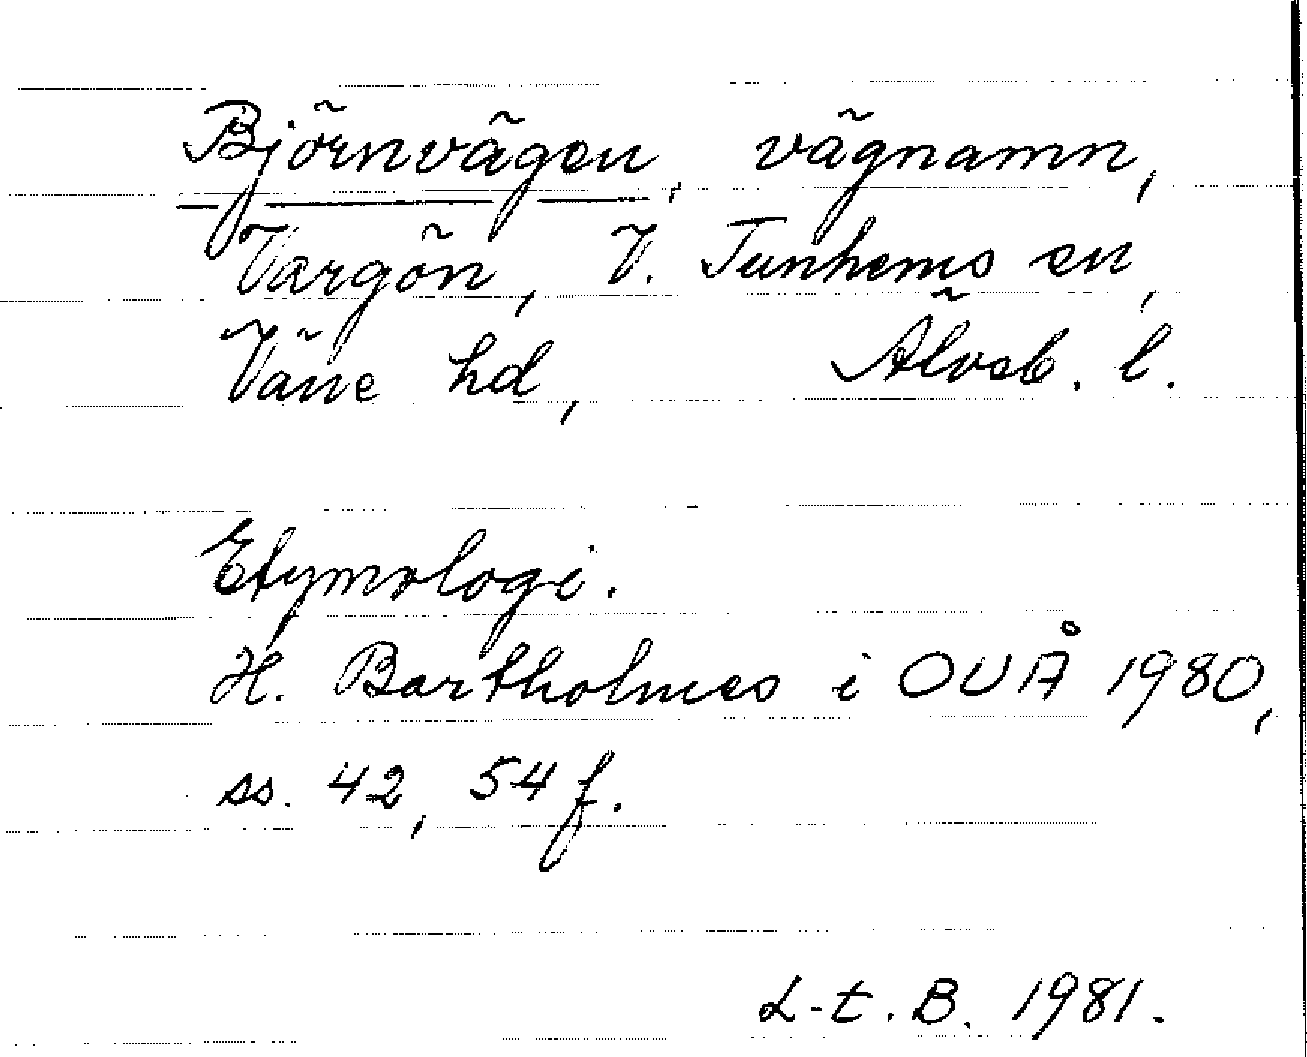 Björnvägen, vägnamn,
Vargön, V. Tunhems sn,
Väne hd, Älvsb. l.
Etymologi.
H. Bartholmes i OUÅ 1980,
ss. 42, 54 f.
L-t. B. 1981.